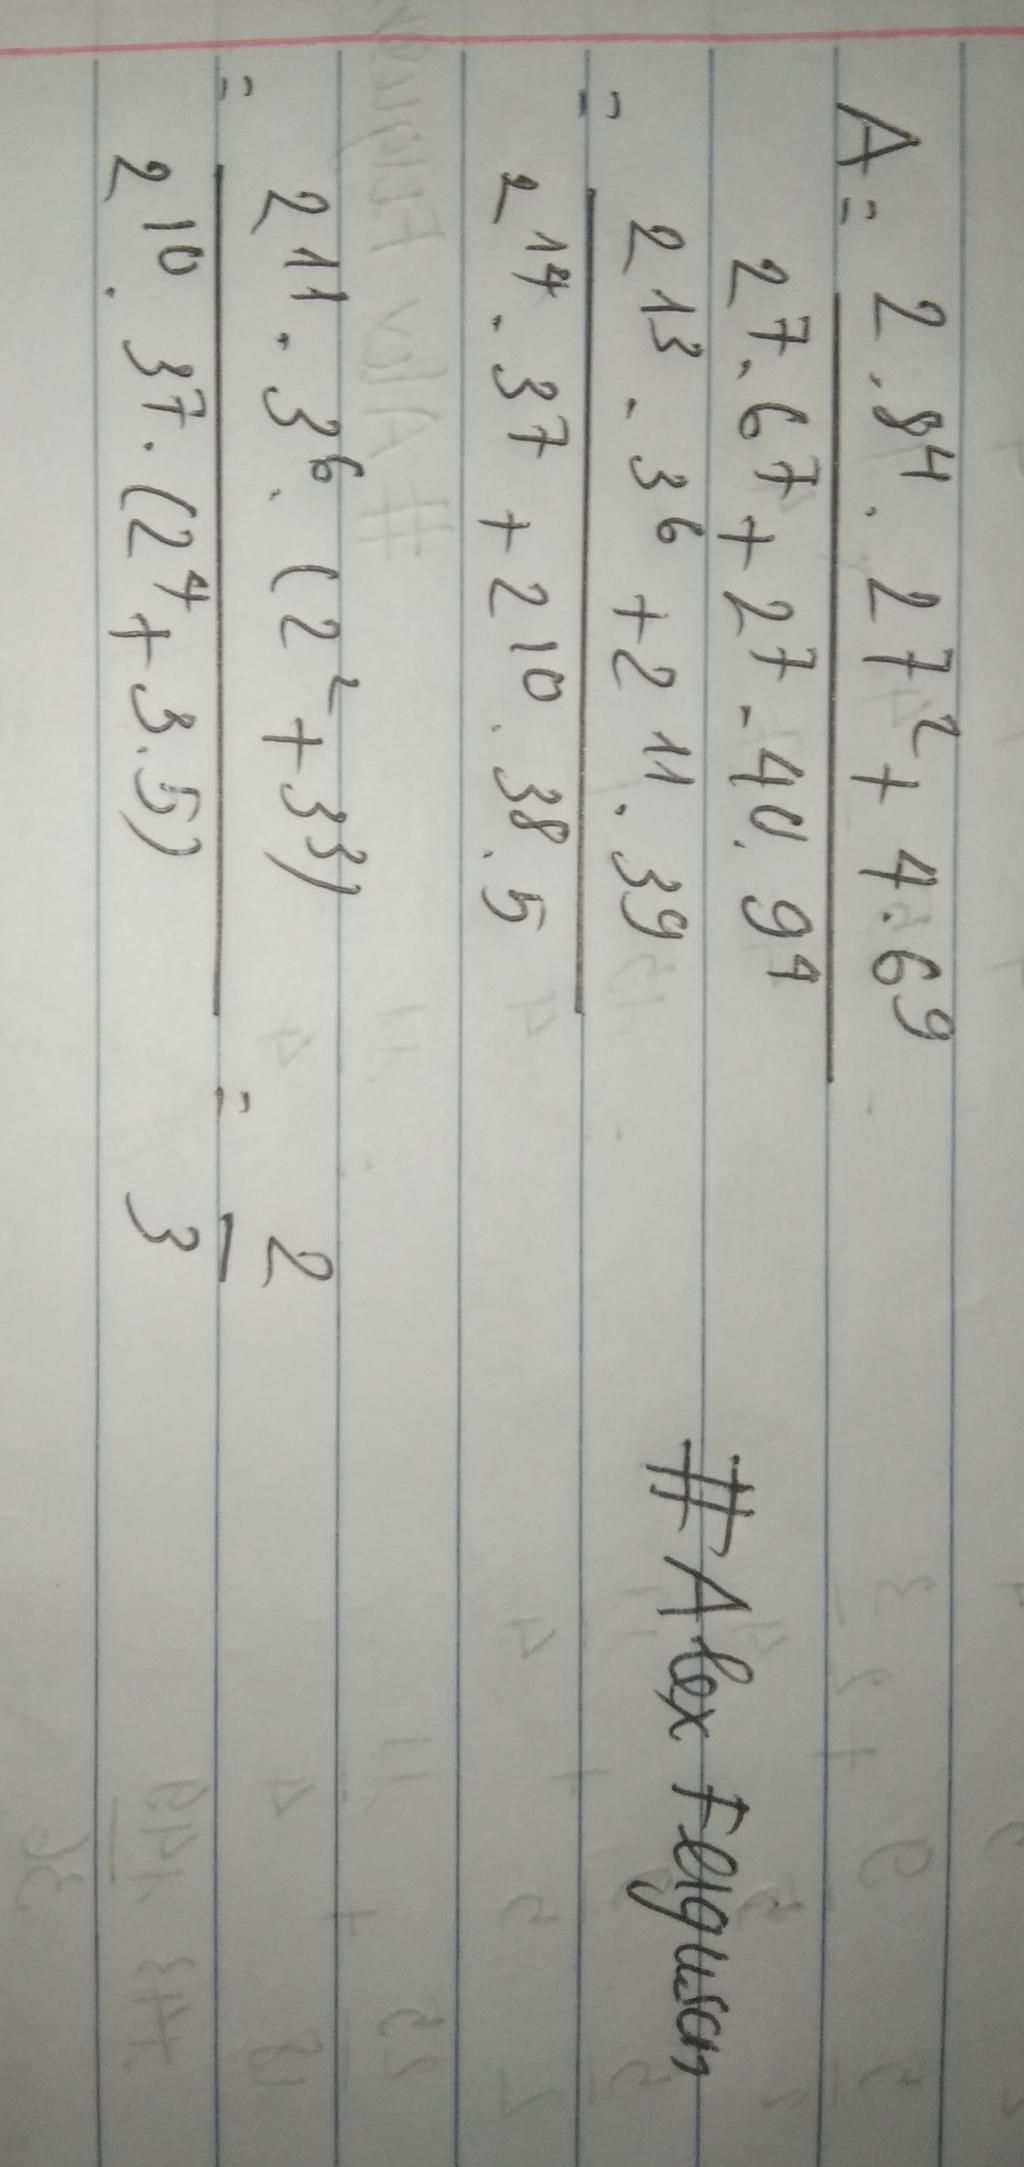 A = 2 . 8⁴ . 27² + 4 . 6⁹
2⁷ . 6⁷ + 2⁷ . 40 . 9⁴
= 2¹³ . 3⁶ + 2¹¹ . 3⁹
2¹⁴ . 3⁷ + 2¹⁰ . 3⁸ . 5
= 2¹¹ . 3⁶ . (2² + 3³)
2¹⁰ . 3⁷ . (2⁴ + 3 . 5)
= 2
3
# Alex Ferguson